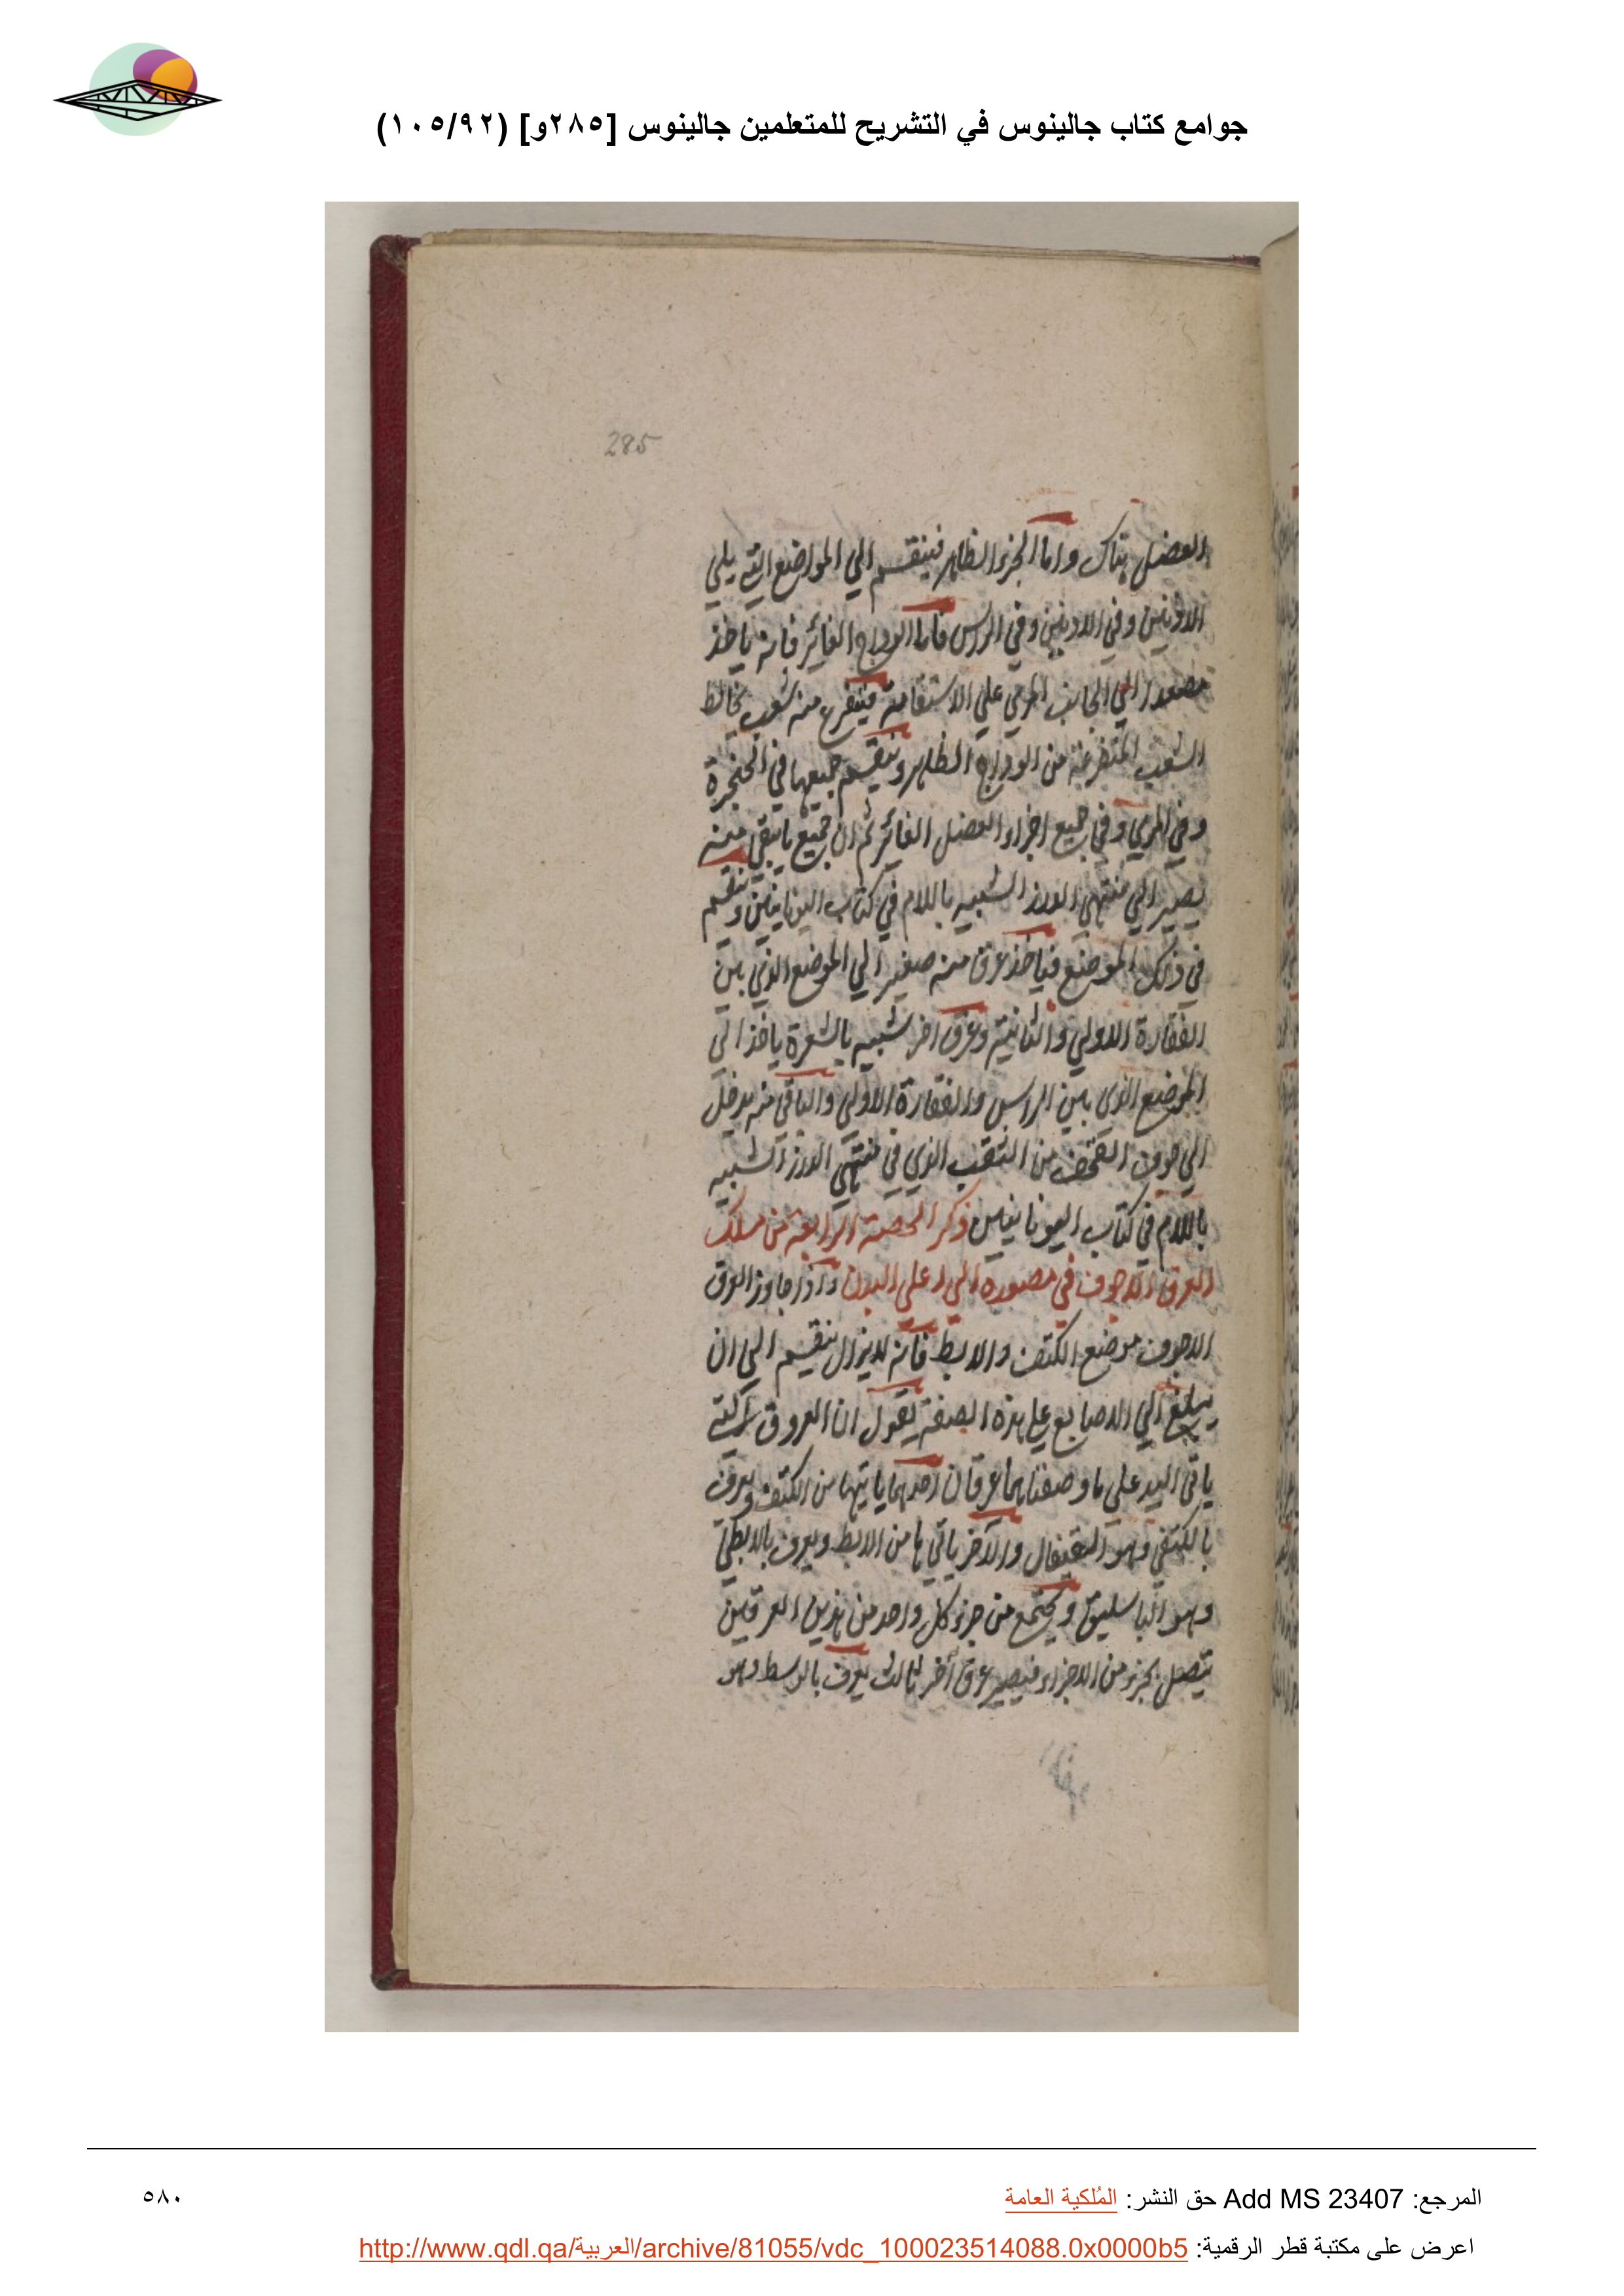 جوامع كتاب جالينوس في التشريح للمتعلمين جالينوس [٢٨٥و] (١٠٥/٩٢)
285
العضل هناك واما الجزء الظاهر فينقسم الي المواضع التي يلي
الاذنين وفي الاذنين وفي الراس فاما الوداج الغائر فانه ياخذ
مصعدا الي الجانب المري علي الاستقامة فيتفرع منه شعب تخالط
الشعب المتفرعة من الوداج الظاهر وينقسم جميعها في الحنجرة
وفي المري وفي جميع اجزاء العضل الغائر ثم ان جميع ما يبقي منه
يصير الي منتهي الدرز الشبيه باللام في كتاب اليونانيين وينقسم
في ذلك الموضع فياخذ عرق منه صغير الي الموضع الذي بين
الفقارة الاولي والثانية وعرق اخر شبيه بالشعرة ياخذ الي
الموضع الذي بين الراس والفقارة الاولي والباقي منه يدخل
الي جوف القحف من الثقب الذي في منتهي الدرز الشبيه
باللام في كتاب اليونانيين ذكر الحصة الرابعة من مسلك
العرق الاجوف في مصيره الي اعلي البدن واذا جاوز العرق
الاجوف موضع الكتف والابط فانه لا يزال ينقسم الي ان
يبلغ الي الاصابع علي هذه الصفة يقول ان العروق التي
ياتي اليد علي ما وصفنا هما عرقان احدهما ياتيها من الكتف ويعرف
بالكتفي وهو القيفال والاخر ياتي ها من الابط ويعرف بالابطي
وهو الباسليق ويجتمع من جزء كل واحد من هذين العرقين
يتصل بجزء من الاجزاء فيصير عرق اخر ثالث يعرف بالوسط وهو
المرجع: Add MS 23407 حق النشر: المُلكية العامة
٥٨٠
اعرض على مكتبة قطر الرقمية: http://www.qdl.qa/العربية/archive/81055/vdc_100023514088.0x0000b5